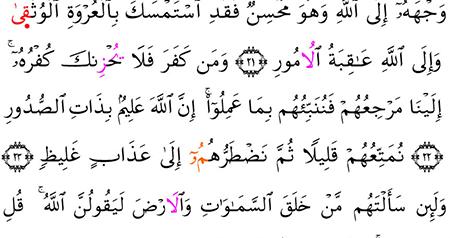 وَجْهَهُۥٓ إِلَى ٱللَّهِ وَهُوَ مُحْسِنٌ فَقَدِ ٱسْتَمْسَكَ بِٱلْعُرْوَةِ ٱلْوُثْقَىٰ
وَإِلَى ٱللَّهِ عَـٰقِبَةُ ٱلُامُورِ ﴿٢١﴾ وَمَن كَفَرَ فَلَا يُحْزِنكَ كُفْرُهُۥٓ ۚ
إِلَيْنَا مَرْجِعُهُمْ فَنُنَبِّئُهُم بِمَا عَمِلُوٓا۟ ۚ إِنَّ ٱللَّهَ عَلِيمٌۢ بِذَاتِ ٱلصُّدُورِ
﴿٢٢﴾ نُمَتِّعُهُمْ قَلِيلًا ثُمَّ نَضْطَرُّهُمُۥٓ إِلَىٰ عَذَابٍ غَلِيظٍ ﴿٢٣﴾
وَلَئِن سَأَلْتَهُم مَّنْ خَلَقَ ٱلسَّمَـٰوَٰتِ وَٱلَارْضَ لَيَقُولُنَّ ٱللَّهُ ۚ قُلِ